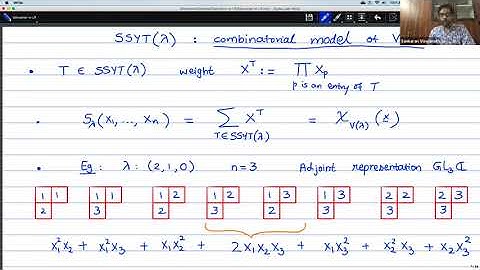 SSYT(λ) : combinatorial model of V
• T ∈ SSYT(λ) weight x^T := ∏ x_p
p is an entry of T
• S_λ(x₁, ..., xₙ) = ∑ x^T = χ_V(λ) (x)
T∈SSYT(λ)
• Eg: λ: (2,1,0) n=3 Adjoint representation GL₃ℂ
1 1 1 1 1 2 1 2 1 3 1 3 2 2 2 3
2 3 2 3 2 3 3 3
x₁²x₂ + x₁²x₃ + x₁x₂² + 2x₁x₂x₃ + x₁x₃² + x₂²x₃ + x₂x₃²